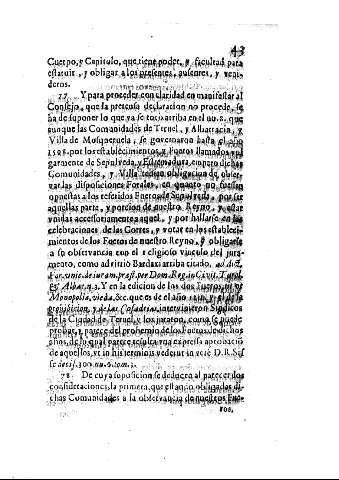 43
Cuerpo, y Capitulo, que tiene poder, y facultad para
estatuir, y obligar a los presentes, ausentes, y veni-
deros.
77. Y para proceder con claridad en manifestar al
Consejo, que la pretensa declaracion no procede, se
ha de suponer lo que ya se toca arriba en el nu.8. que
aunque las Comunidades de Teruel, y Albarracin, y
Villa de Mosqueruela, se governaron hasta el año
1598. por los establecimientos, y Fueros llamados vul-
garmente de Sepulveda, y Estremadura, empero dichas
Comunidades, y Villa tenian obligacion de obser-
var las disposiciones Forales, en quanto no fuessen
opuestas a los referidos Fueros de Sepulveda, por ser
aquellas parte, y porcion de nuestro Reyno, y estar
vnidas accessoriamente a aquel, y por hallarse en las
celebraciones de las Cortes, y votar en los estableci-
mientos de los Fueros de nuestro Reyno, y obligarse
a su observancia con el religioso vinculo del jura-
mento, como advirtio Bardaxi arriba citado, ad dict.
For. vnic. de iuram. præst. per Dom. Reg. in Civit. Turol.
& Albar. n.3. Y en la edicion de los dos Fueros,
Monopolis, vieda, &c. que es de el año
prohibicion, y de las Cofadrias, intervinieron Sindicos
de la Ciudad de Teruel, y los juraron, como se puede
probar, y parece del prohemio de los Fueros de dichos
años, de lo qual parece resulta vna expressa aprobacion
de aquellos, vt in his terminis vedetur in verè D.R. Ses-
se decis. 300. nu.6. tom.3.
78. De cuya suposicion se deducen al parecer dos
consideraciones, la primera, que estando obligadas di-
chas Comunidades a la observancia de nuestros Fue-
ros,